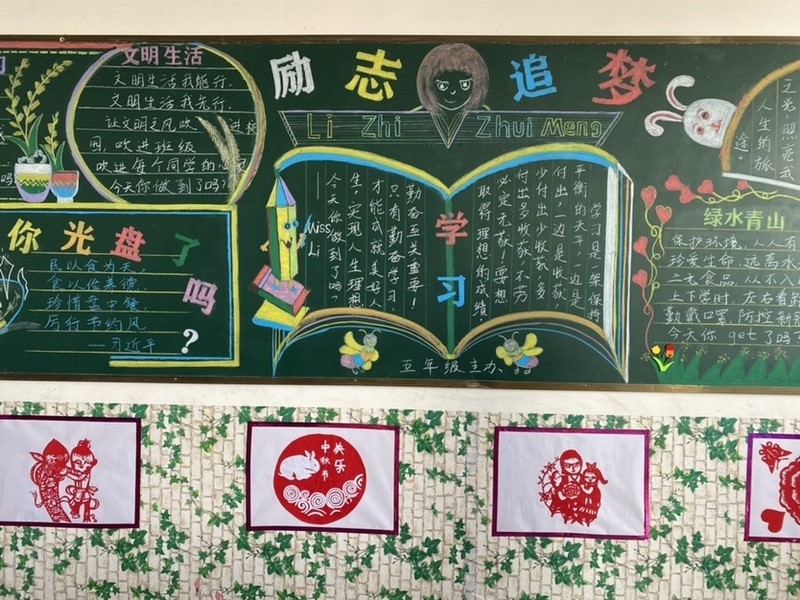 文明生活
文明生活我能行.
文明生活我先行.
让文明之风吹进校
园.吹进班级
吹进每个同学的心灵
今天你做到了吗?
励志追梦
Li Zhi Zhui Meng
你光盘了吗?
民以食为天,
食以俭养德
珍惜盘中餐,
厉行节约风
——习近平
Miss Li
学习
学习是一架保持
平衡的天平,一边是
付出,一边是收获,
少付出少收获,多
付出多收获,不劳
必定无获!要想
取得理想的成绩,
勤奋至关重要!
只有勤奋学习,
才能成就美好人
生,实现人生理想
今天你做到了吗?
五年级主办.
之光,照亮我
人生的旅
途.
绿水青山
保护环境,人人有
珍爱生命,远离水
三无食品,从不入
上下学时,左右看
勤戴口罩,防控新
今天你get了吗?
中秋节
快乐